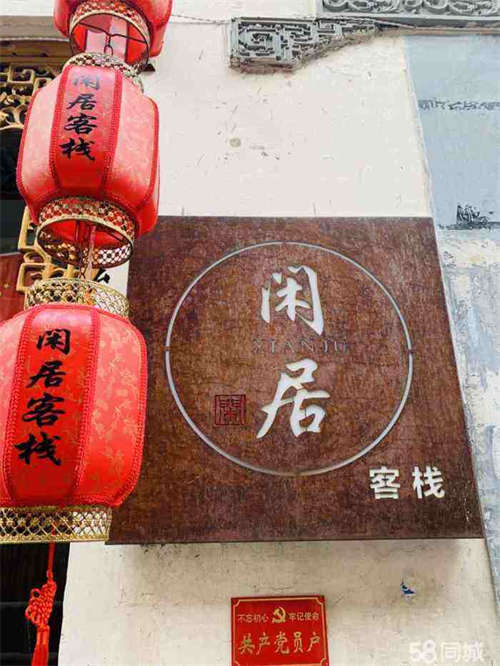 闲居客栈
闲居客栈
闲
XIANJU
居
客栈
不忘初心 牢记使命
共产党员户
58同城